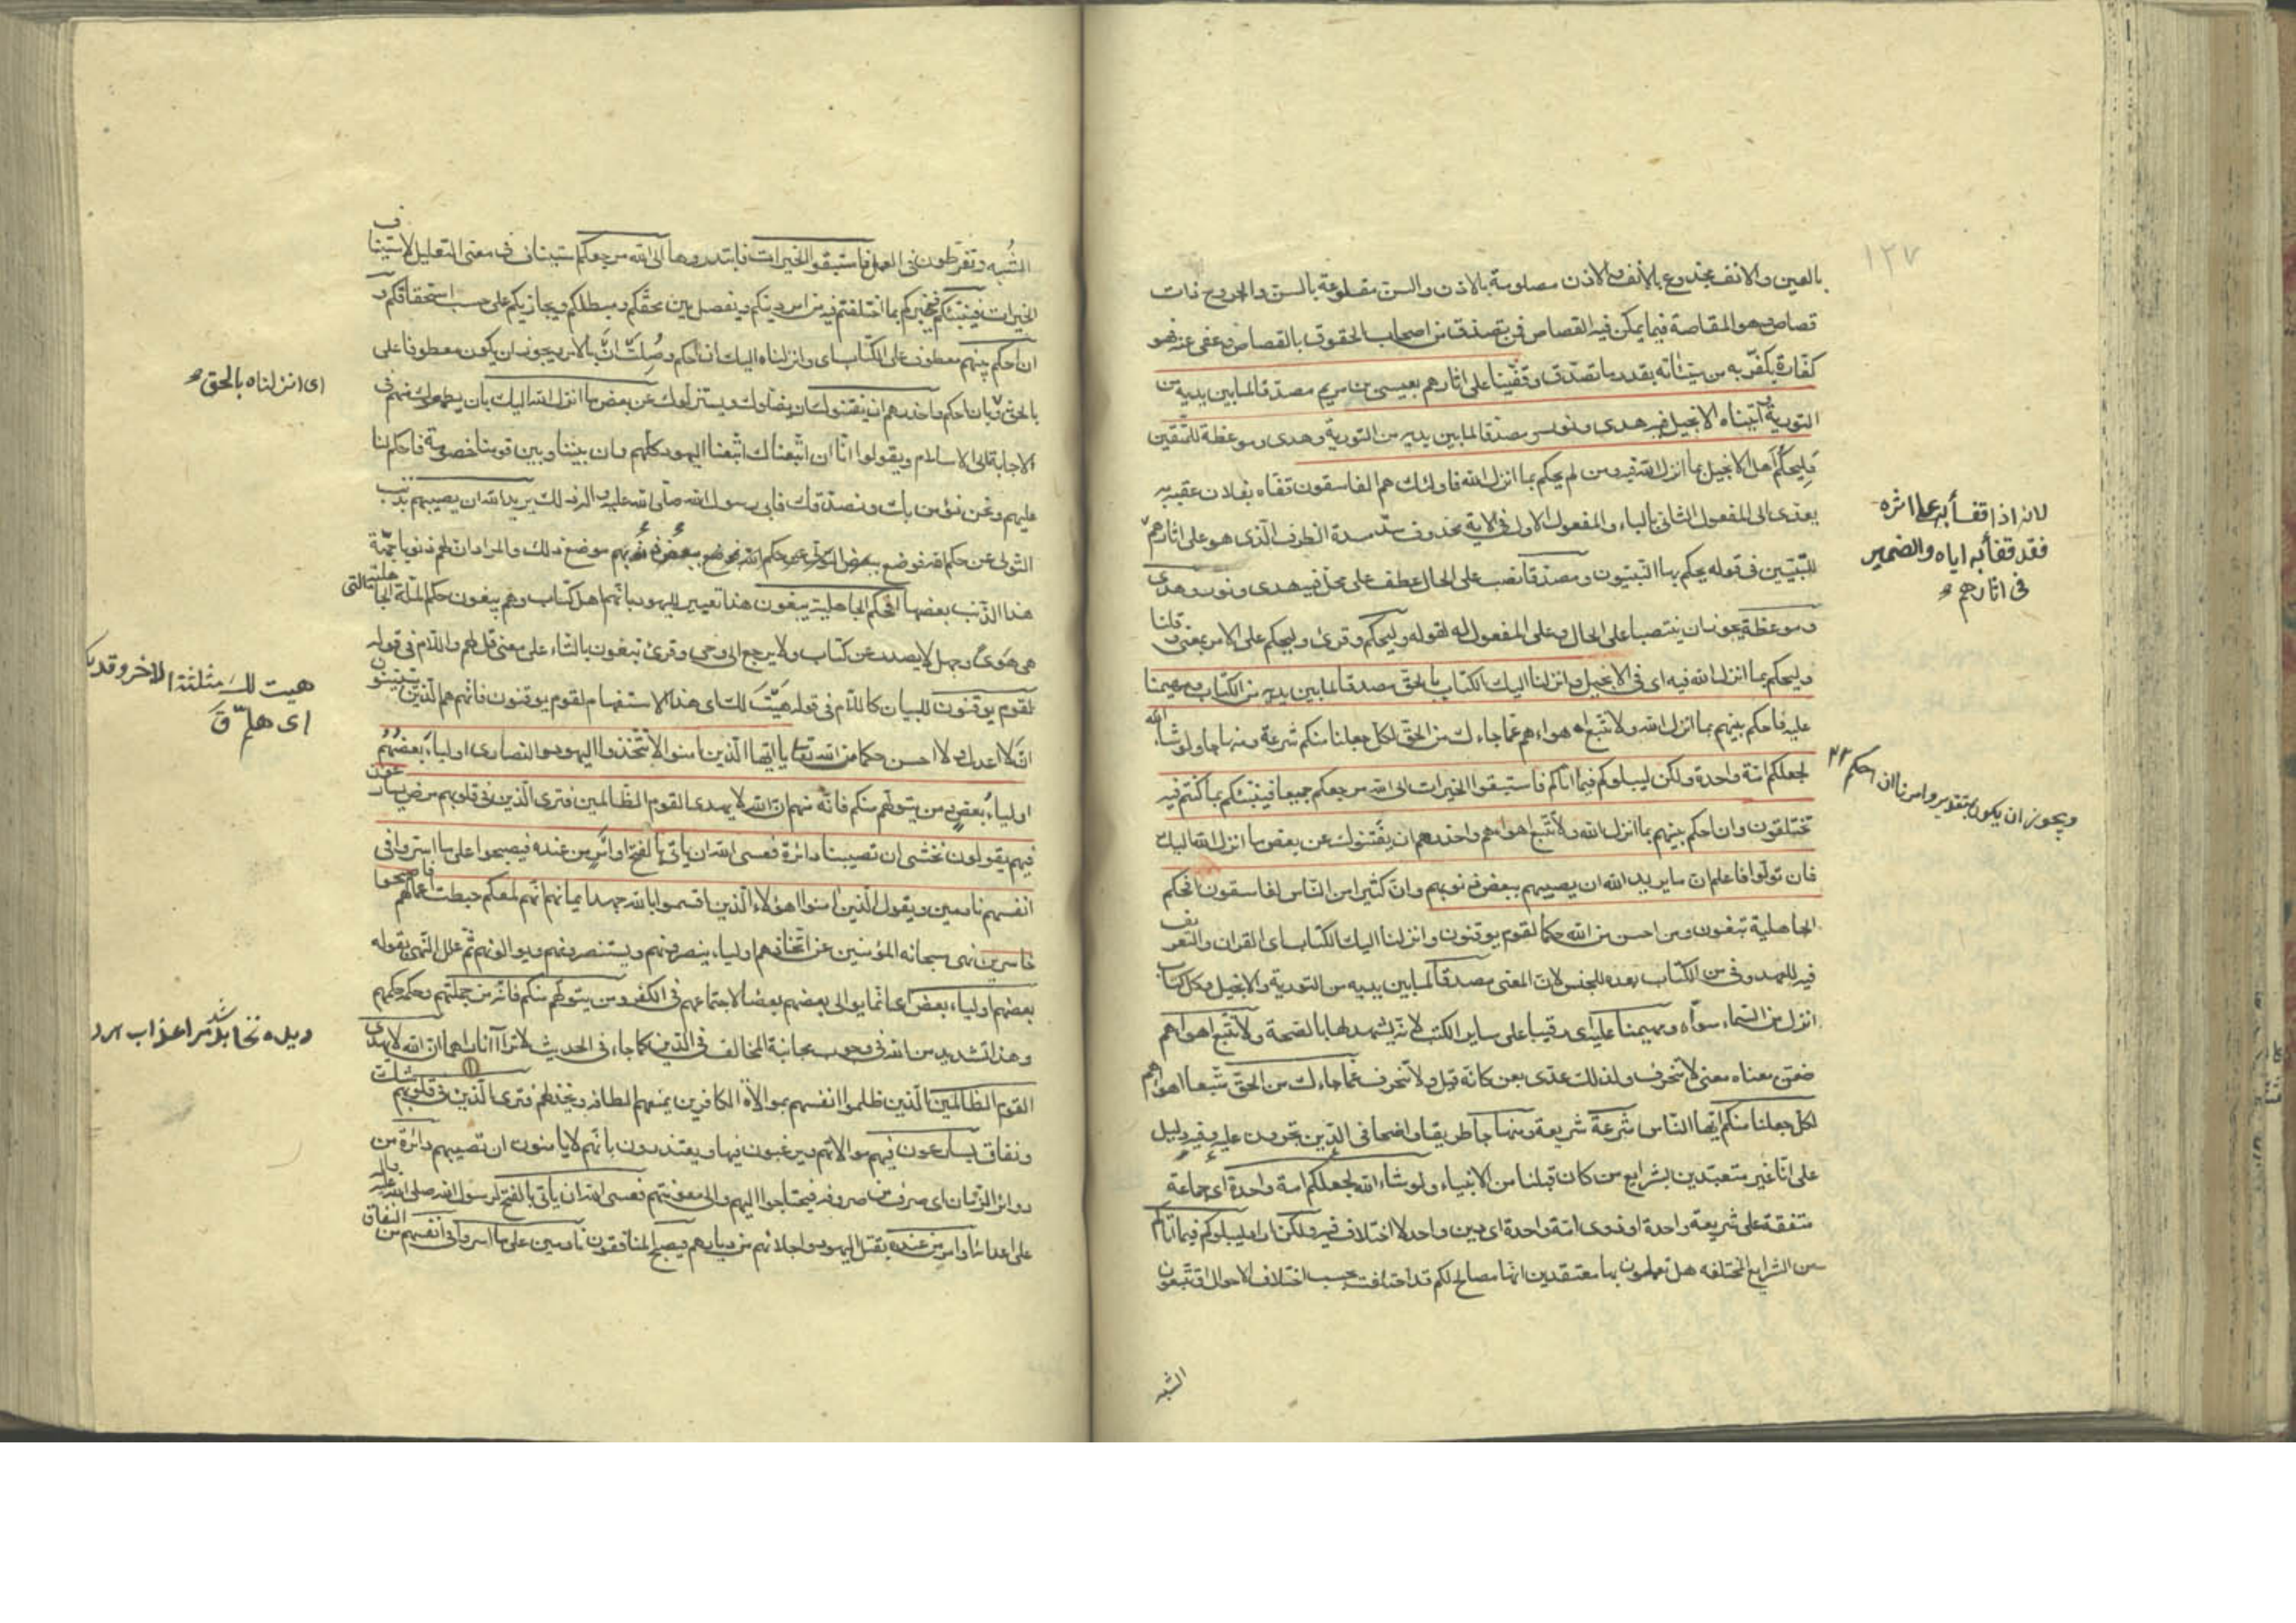 ١٢٧
بالعين والانف مجدوع بالأنف والاذن مصلومة بالاذن والسن مقلوعة بالسن والجروح ذات
قصاص وهو المقاصة فيما يمكن فيه القصاص فمن تصدق من اصحاب الحقوق بالقصاص وعفى عنه فهو
كفّارة يكفّر به من سيّئاته بقدر ما تصدّق وقفّينا على اثارهم بعيسى بن مريم مصدّقا لما بين يديه من
التورية وآتيناه الانجيل فيه هدى ونور ومصدّقا لما بين يديه من التورية وهدى وموعظة للمتّقين
وليحكم اهل الانجيل بما انزل الله فيه ومن لم يحكم بما انزل الله فاولئك هم الفاسقون تقفاه بفلان عقبه به
يعدى الى المفعول الثانى بالباء والمفعول الاول فى الاية محذوف سدّ مسدّه الظرف الّذى هو على اثارهم
للنّبيّين فى قوله يحكم بها النبيّون ومصدّقا نصب على الحال عطف على محلّ فيه هدى ونور وهدى
وموعظة يجوز ان ينتصبا على الحال وعلى المفعول له لقوله وليحكم وقرئ وليحكم على الامر بمعنى وقلنا
وليحكم بما انزل الله فيه اى فى الانجيل وانزلنا اليك الكتاب بالحقّ مصدقا لما بين يديه من الكتاب ومهيمنا
عليه فاحكم بينهم بما انزل الله ولا تتّبع اهواءهم عمّا جاءك من الحقّ لكل جعلنا منكم شرعة ومنهاجا ولو شاء الله
لجعلكم امّة واحدة ولكن ليبلوكم فيما اتاكم فاستبقوا الخيرات الى الله مرجعكم جميعا فينبّئكم بما كنتم فيه
تختلفون وان احكم بينهم بما انزل الله ولا تتّبع اهواءهم واحذرهم ان يفتنوك عن بعض ما انزل الله اليك
فان تولّوا فاعلم انّ ما يريد الله ان يصيبهم ببعض ذنوبهم وانّ كثيرا من النّاس لفاسقون افحكم
الجاهلية تبغون ومن احسن من الله حكما لقوم يوقنون وانزلنا اليك الكتاب اى القران والتعريف
فيه للعهد وفى من الكتاب بعده للجنس لانّ المعنى مصدقا لما بين يديه من التورية والانجيل وكل كتاب
انزل من السّماء سواه ومهيمنا عليه اى رقيبا على ساير الكتب لانّه يشهد لها بالصّحة ولا تتّبع اهواءهم
ضمّن معناه معنى لا تنحرف ولذلك عدّى بعن كانّه قيل ولا تنحرف عمّا جاءك من الحقّ متّبعا اهواءهم
لكلّ جعلنا منكم ايّها النّاس شرعة شريعة ومنهاجا طريقا واضحا فى الدّين تجرون عليه وفيه دليل
على انّا غير متعبّدين بشرايع من كان قبلنا من الانبياء ولو شاء الله لجعلكم امة واحدة اى جماعة
متّفقة على شريعة واحدة او ذوى امّة واحدة اى دين واحد لا اختلاف فيه ولكن اراد ليبلوكم فيما اتاكم
من الشرايع المختلفه هل تعملون بها معتقدين انّها مصالح لكم قد اختلفت بحسب اختلاف الاحوال او تتّبعون
الشبه
لانه اذا قفأ به على اثره
فقد قفأ به اياه والضمير
فى اثارهم
ويجوز ان يكون بتقدير وامرنا ان احكم
الشُبه وتفرّطون فى العمل فاستبقوا الخيرات فابتدروها الى الله مرجعكم استيناف فى معنى التعليل لاستيناف
الخيرات فينبّئكم فيخبركم بما اختلفتم فيه من امر دينكم ويفصل بين محقّكم ومبطلكم ويجازيكم على حسب استحقاقكم و
ان احكم بينهم معطوف على الكتاب اى وانزلناه اليك ان احكم وصُلِت انّ بالامر ويجوز ان يكون معطوفا على
بالحقّ وبان احكم واحذرهم ان يفتنوك ان يضلوك ويستزلّوك عن بعض ما انزل الله اليك بان يطمعوك منهم فى
الاجابة الى الاسلام ويقولوا انّا ان اتّبعناك اتّبعنا اليهود كلّهم وان بيننا وبين قومنا خصومة فاحكم لنا
عليهم ونحن نؤمن بك ونصدّقك فابى رسول الله صلى الله عليه واله ذلك يريد الله ان يصيبهم بذنب
التولى عن حكم الله فوضع ببعض ذنوبهم موضع ذلك والمراد انّ لهم ذنوبا جمّة
هذا الذّنب بعضها افحكم الجاهلية يبغون هذا تعيير لليهود بانّهم اهل كتاب وهم يبغون حكم الملّة الجاهلية التى
هى هوىً وجهل لا يصدر عن كتاب ولا يرجع الى وحى وقرئ تبغون بالتّاء على معنى قل لهم واللّام فى قوله
لقوم يوقنون للبيان كاللّام فى قوله هَيْتَ لك اى هذا الاستفهام لقوم يوقنون فانّهم هم الّذين يتبيّنون
انّ لا اعدل ولا احسن حكما من الله تعا يا ايّها الّذين امنوا لا تتّخذوا اليهود والنصارى اولياء بعضُهُم
اولياءُ بعضٍ ومن يتولّهم منكم فانّه منهم انّ الله لا يهدى القوم الظّالمين فترى الّذين فى قلوبهم مرض يسارعون
فيهم يقولون نخشى ان تصيبنا دائرة فعسى الله ان ياتى بالفتح او امر من عنده فيصبحوا على ما اسرّوا فى
انفسهم نادمين ويقول الّذين امنوا اهؤلاء الّذين اقسموا بالله جهد ايمانهم انّهم لمعكم حبطت اعمالهم فاصبحوا
خاسرين نهى سبحانه المؤمنين عن اتّخاذهم اولياء ينصرونهم ويستنصرونهم ويوالونهم ثمّ علل النّهى بقوله
بعضهم اولياء بعض اى انّما يوالى بعضهم بعضا لاجتماعهم فى الكفر ومن يتولّهم منكم فانّه من جملتهم وحكمه حكمهم
وهذا تشديد من الله فى وجوب مجانبة المخالف فى الدّين كما جاء فى الحديث لا تراآ ناراهما ان الله لا يهدى
القوم الظّالمين الّذين ظلموا انفسهم بموالاة الكافرين يمنعهم الطافه ويخذلهم فترى الّذين فى قلوبهم شك
ونفاق يسارعون فيهم موالاتهم ويرغبون فيها ويعتذرون بانّهم لا يامنون ان تصيبهم دائرة من
دوائر الزّمان اى صرف من صروفه فيحتاجوا اليهم والى معونتهم فعسى الله ان ياتى بالفتح لرسول الله صلى الله عليه واله
على اعدائه او امر من عنده بقتل اليهود واجلائهم من ديارهم فيصبح المنافقون نادمين على ما اسرّوا فى انفسهم من النفاق
اى انزلناه بالحق
هيت لك مثلثة الاخر وقد
اى هلمّ ق